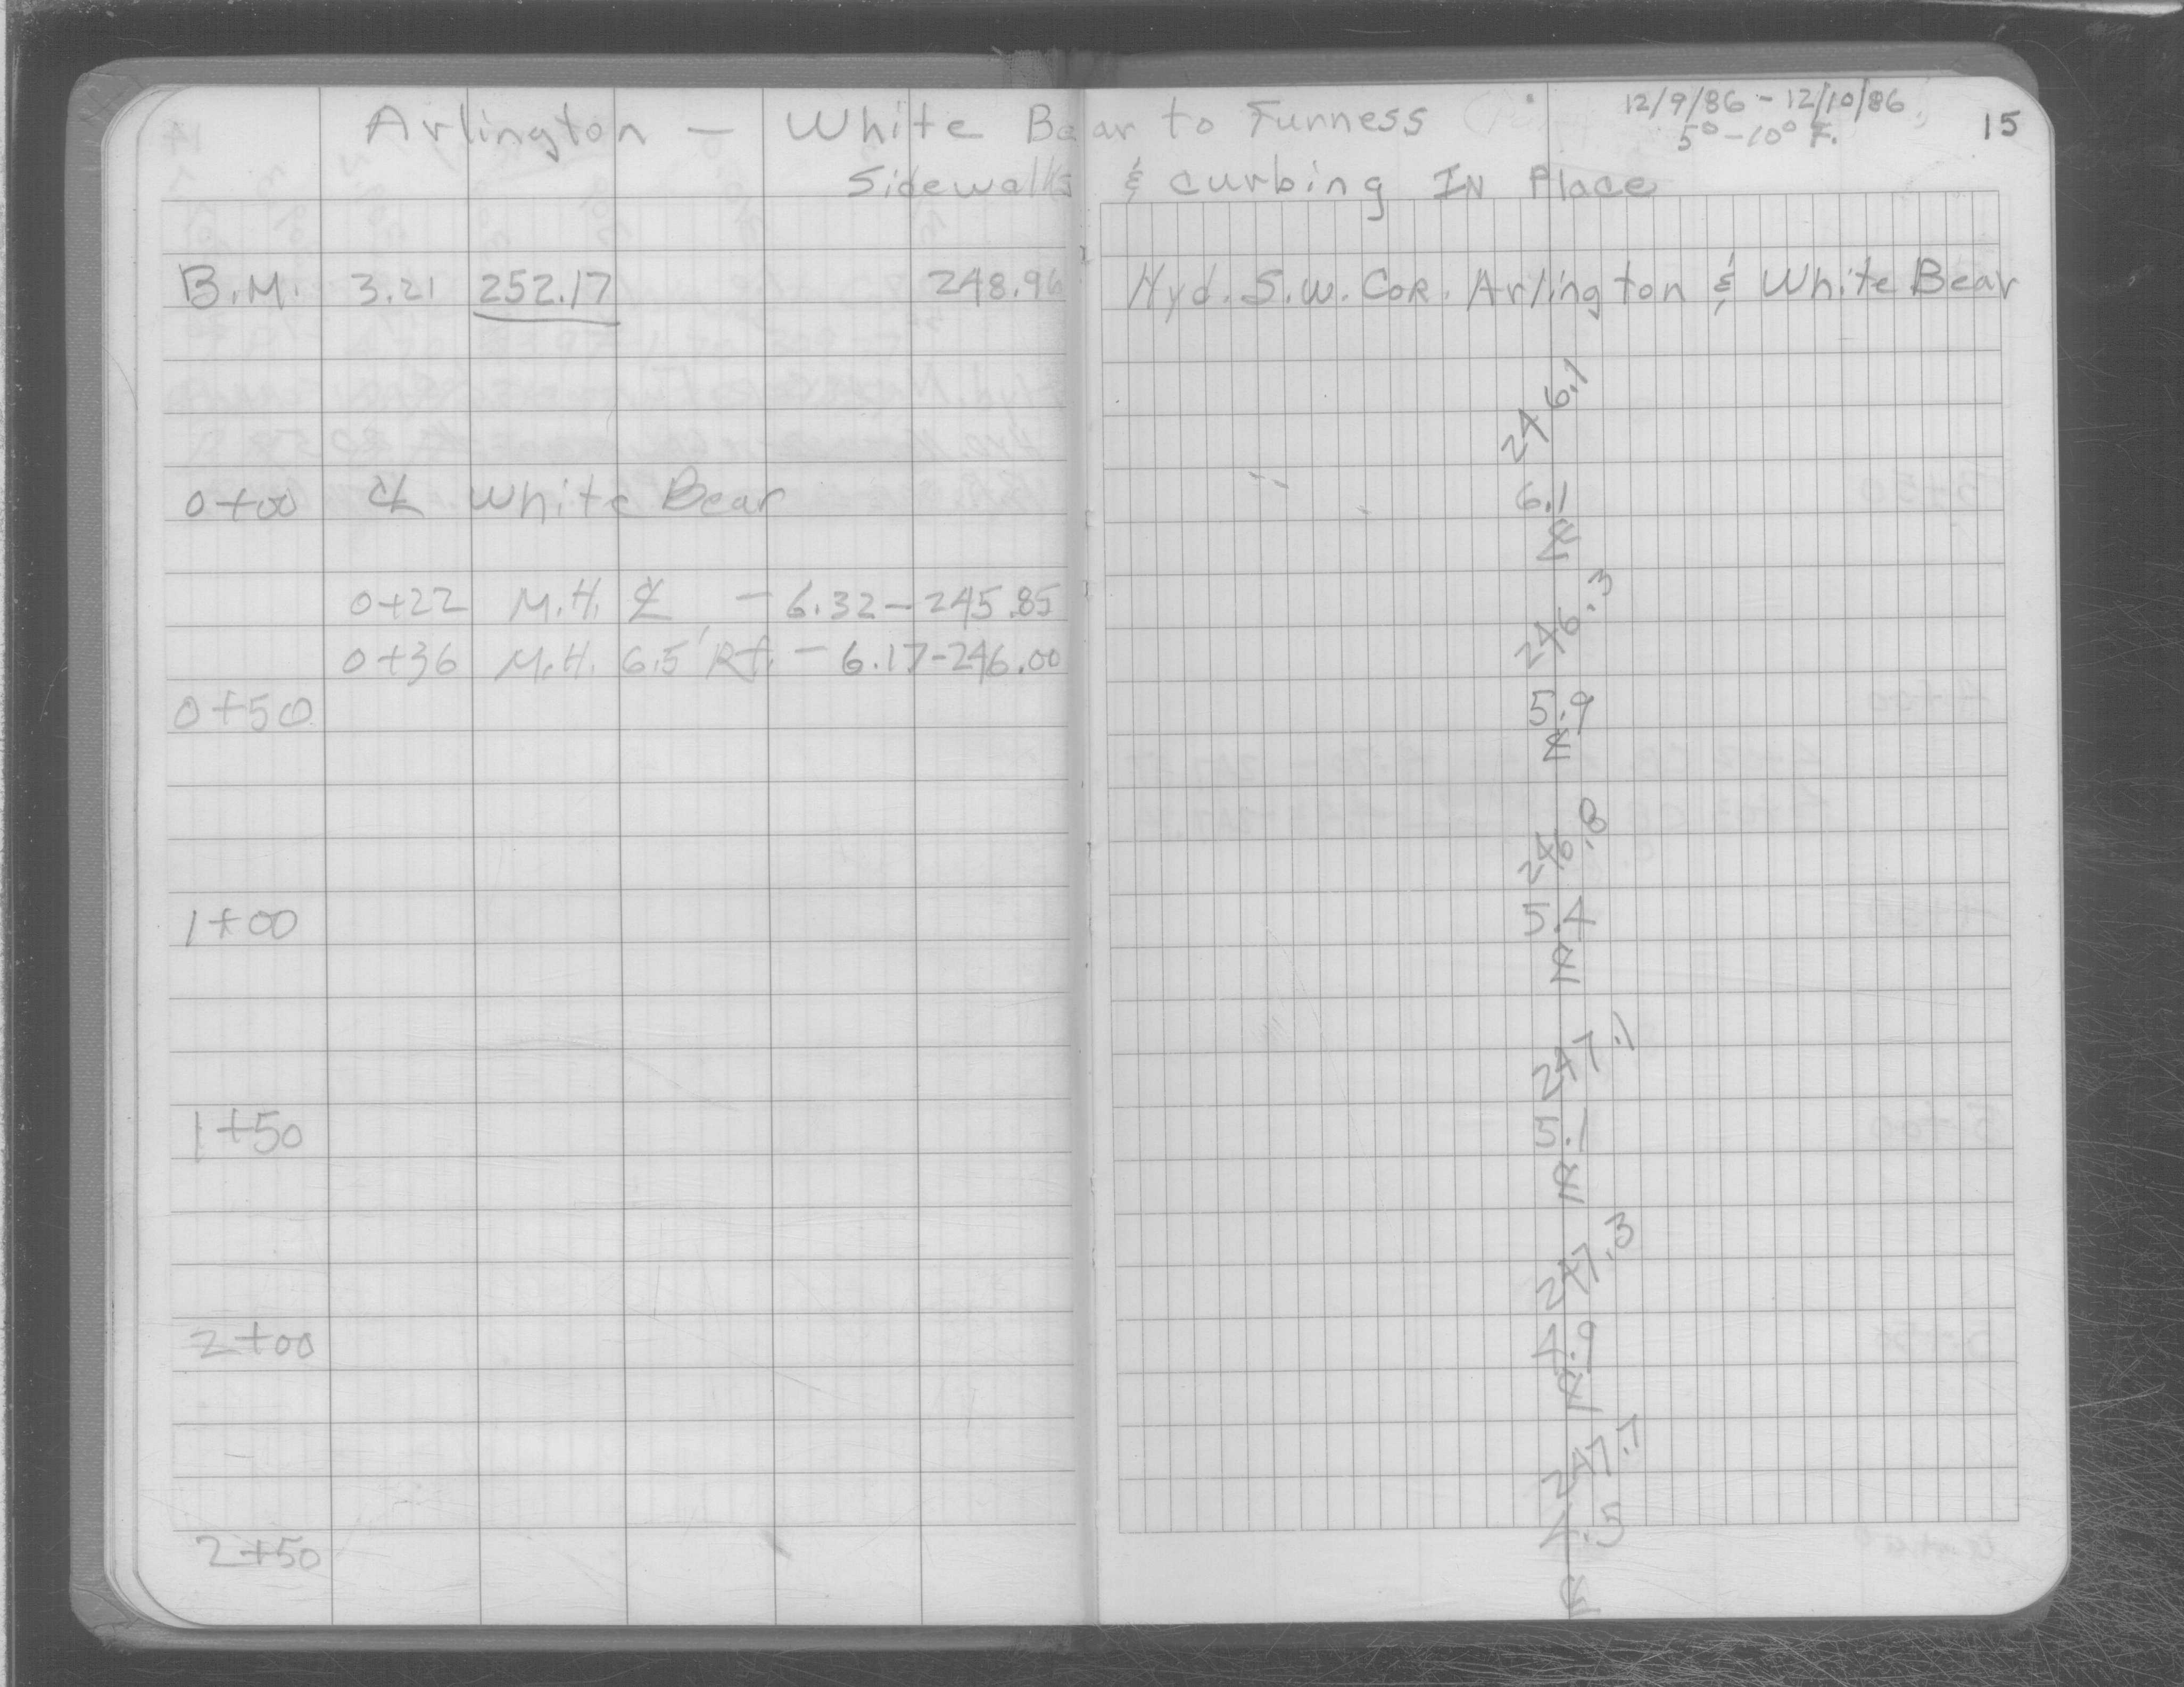 Arlington — White Bear to Furness 12/9/86 - 12/10/86 15
5° - 10° F.
Sidewalks & curbing IN Place
B.M. 3.21 252.17 248.96 Hyd. S.W. COR. Arlington & White Bear
246.1
0+00 ℄ White Bear 6.1
℄
246.3
0+22 M.H. ℄ - 6.32 - 245.85
0+36 M.H. 6.5' Rt. - 6.17 - 246.00
0+50 5.9
℄
246.8
1+00 5.4
℄
247.1
1+50 5.1
℄
247.3
2+00 4.9
℄
247.7
2+50 4.5
℄